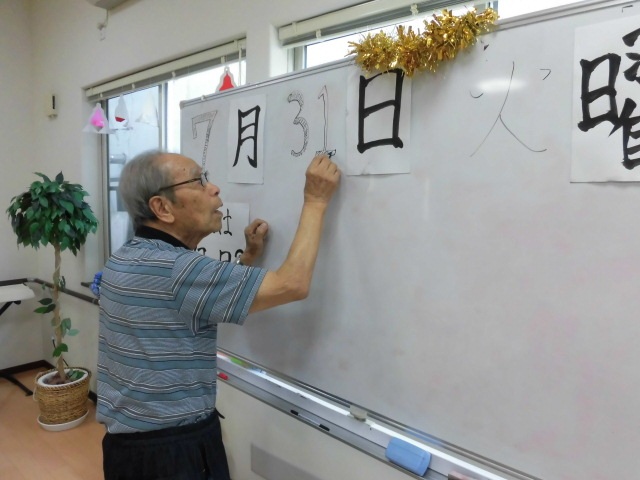 7月31日 火曜
は